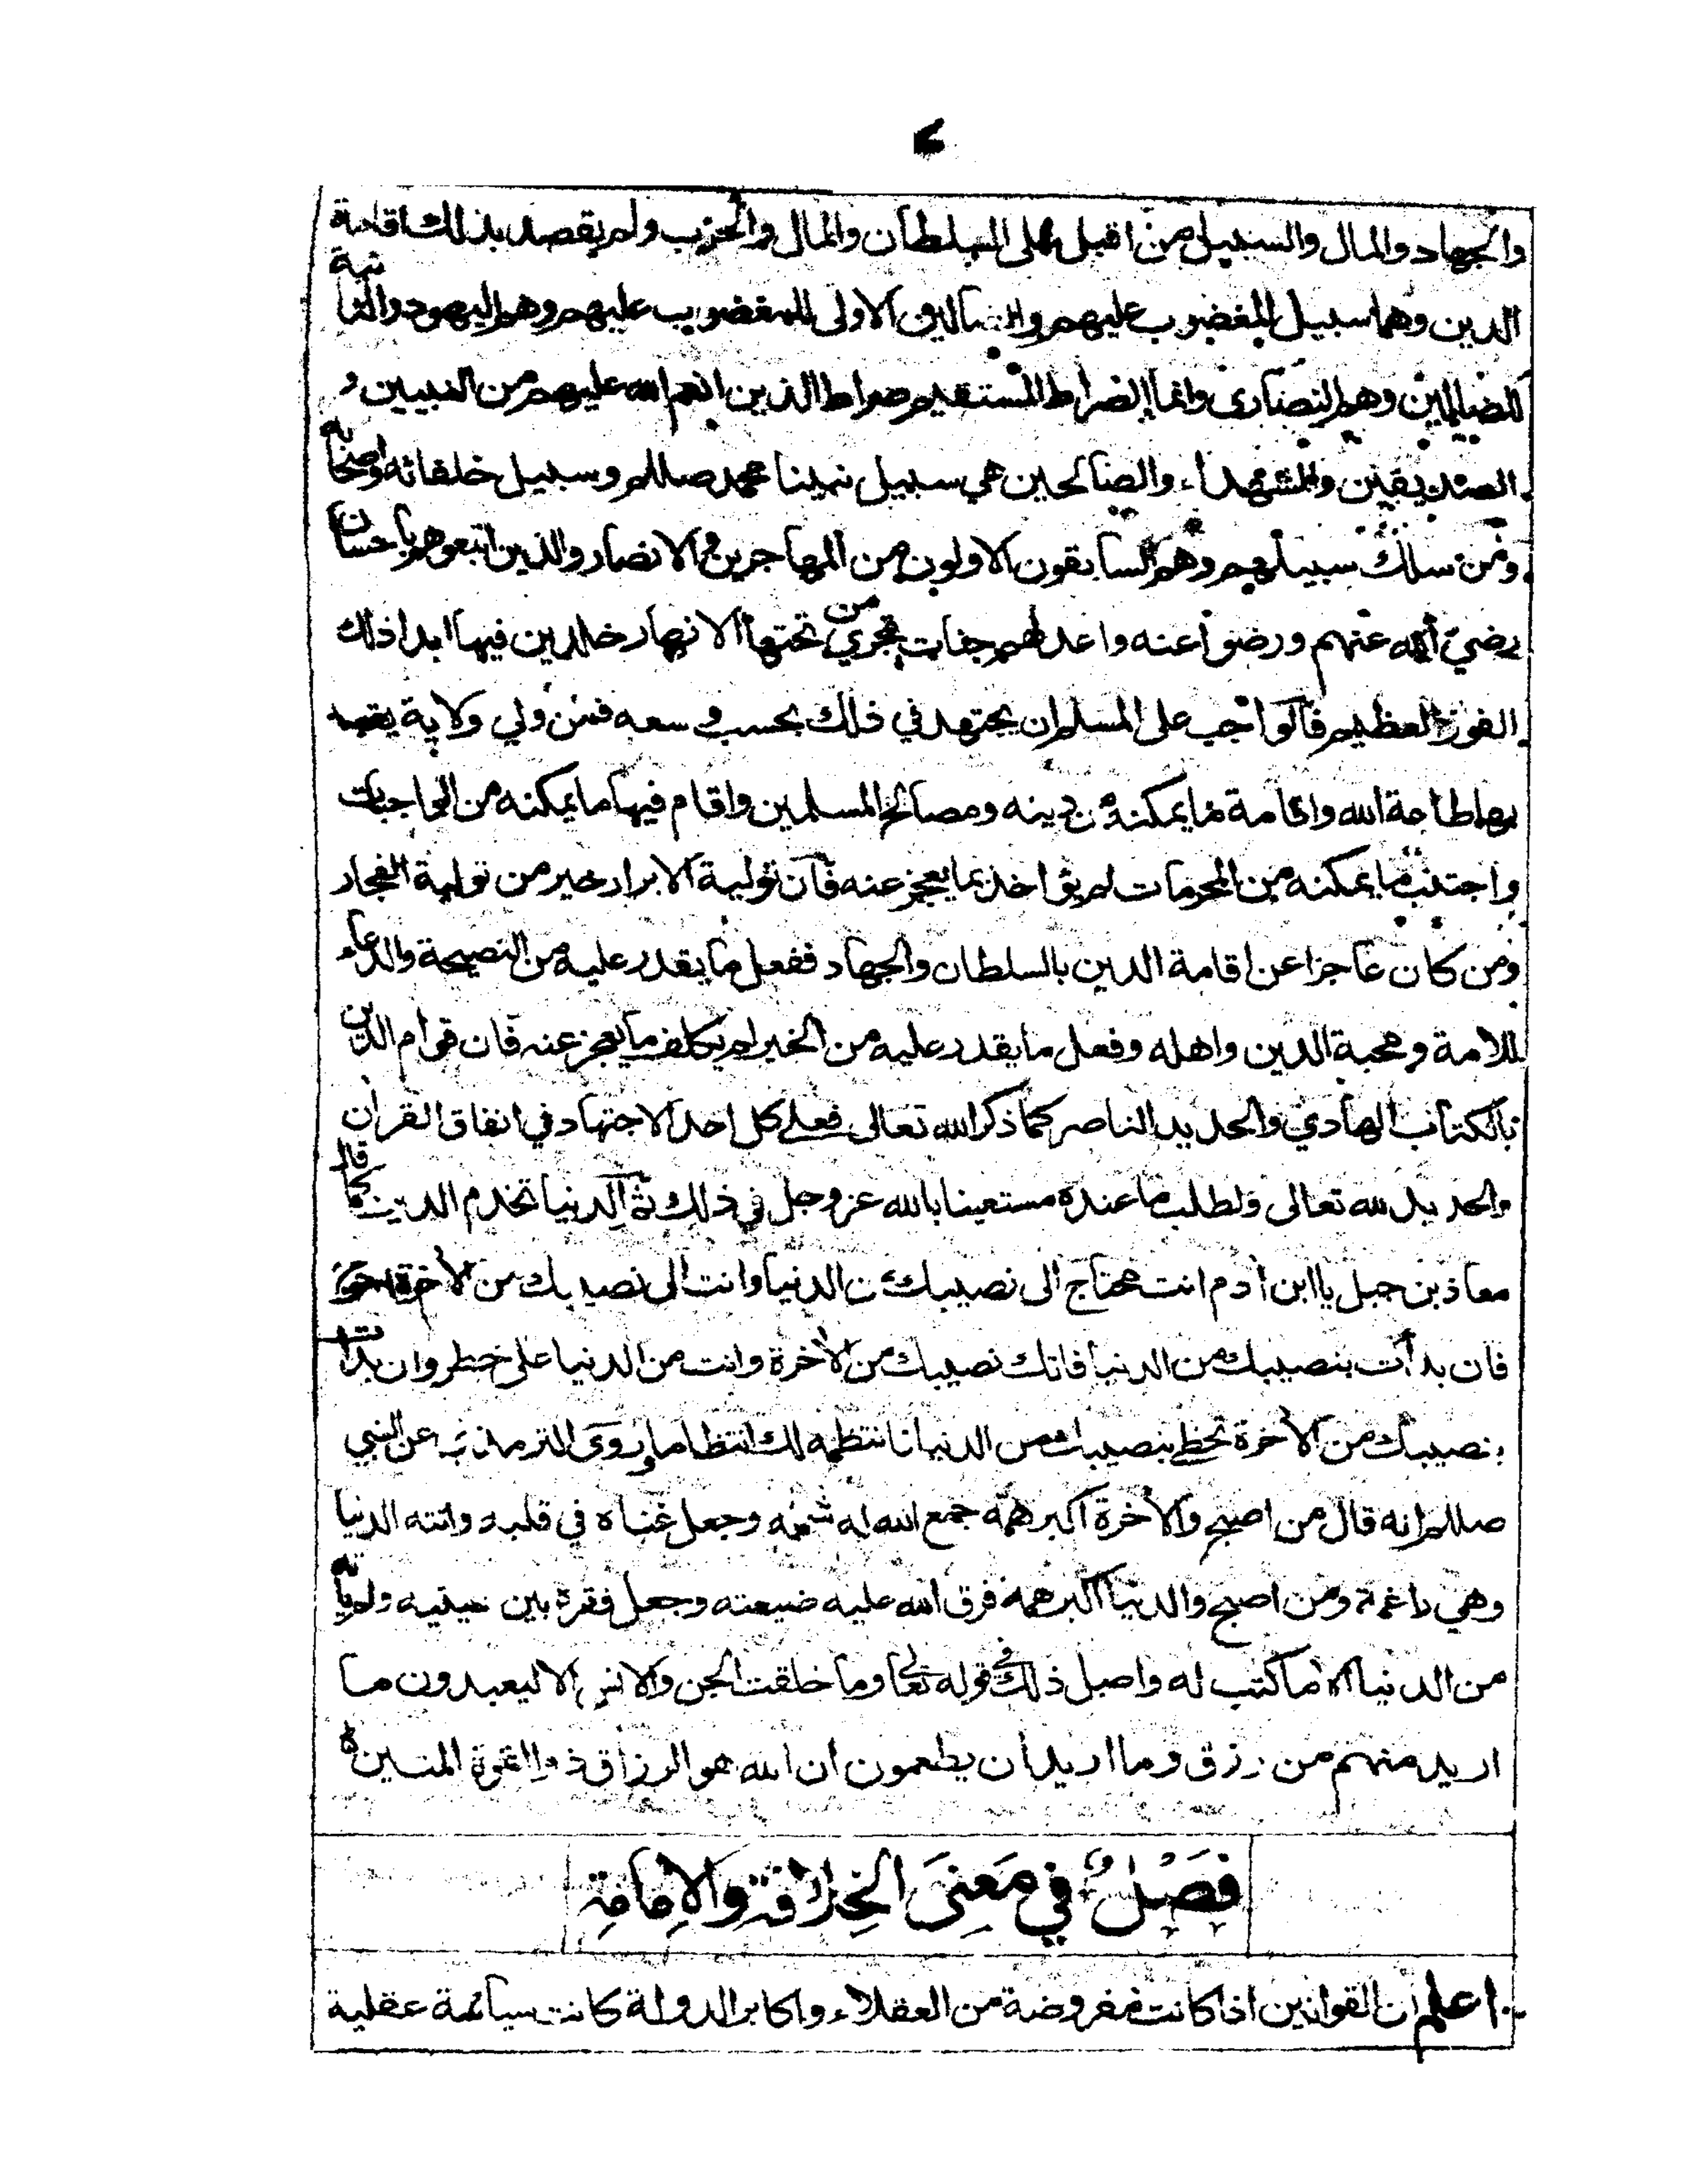 والجهاد والمال والسبيل من اقبل على السلطان والمال والحرب ولم يقصد بذلك اقامة
الدين وهما سبيل المغضوب عليهم والضالين الاولى للمغضوب عليهم وهم اليهود والثانية
للضالين وهم النصارى وانما الصراط المستقيم صراط الذين انعم الله عليهم من النبيين و
الصديقين والشهداء والصالحين هي سبيل نبينا محمد صللم وسبيل خلفائه واصحابه
ومن سلك سبيلهم وهم السابقون الاولون من المهاجرين والانصار والذين اتبعوهم باحسان
رضي الله عنهم ورضوا عنه واعد لهم جنات تجري من تحتها الانهار خالدين فيها ابدا ذلك
الفوز العظيم فالواجب على المسلم ان يجتهد في ذلك بحسب وسعه فمن ولي ولاية يقصد
بها طاعة الله واقامة ما يمكنه من دينه ومصالح المسلمين واقام فيها ما يمكنه من الواجبات
واجتنب ما يمكنه من المحرمات لم يؤاخذ بما يعجز عنه فان تولية الابرار خير من تولية الفجار
ومن كان عاجزا عن اقامة الدين بالسلطان والجهاد ففعل ما يقدر عليه من النصيحة والدعاء
للامة ومحبة الدين واهله وفعل ما يقدر عليه من الخير لم يكلف ما يعجز عنه فان قوام الدين
بالكتاب الهادي والحديد الناصر كما ذكر الله تعالى فعلى كل احد الاجتهاد في انفاق القرآن
والحديد لله تعالى ولطلب ما عنده مستعينا بالله عز وجل في ذلك ثم الدنيا تخدم الدين كما قال
معاذ بن جبل يا ابن آدم انت محتاج الى نصيبك من الدنيا وانت الى نصيبك من الآخرة احوج
فان بدأت بنصيبك من الدنيا فاتك نصيبك من الآخرة وانت من الدنيا على خطر وان بدأت
بنصيبك من الآخرة تحظ بنصيبك من الدنيا فانتظمه لك انتظاما وروى الترمذي عن النبي
صللم انه قال من اصبح والآخرة اكبر همه جمع الله له شمله وجعل غناه في قلبه واتته الدنيا
وهي راغمة ومن اصبح والدنيا اكبر همه فرق الله عليه ضيعته وجعل فقره بين عينيه ولم يأته
من الدنيا الا ما كتب له واصل ذلك في قوله تعالى وما خلقت الجن والانس الا ليعبدون ما
اريد منهم من رزق وما اريد ان يطعمون ان الله هو الرزاق ذو القوة المتين
فَصْلٌ في مَعنِىَ الخِلافَة والإمامة
اعلم ان القوانين اذا كانت مفروضة من العقلاء واكابر الدولة كانت سياسة عقلية